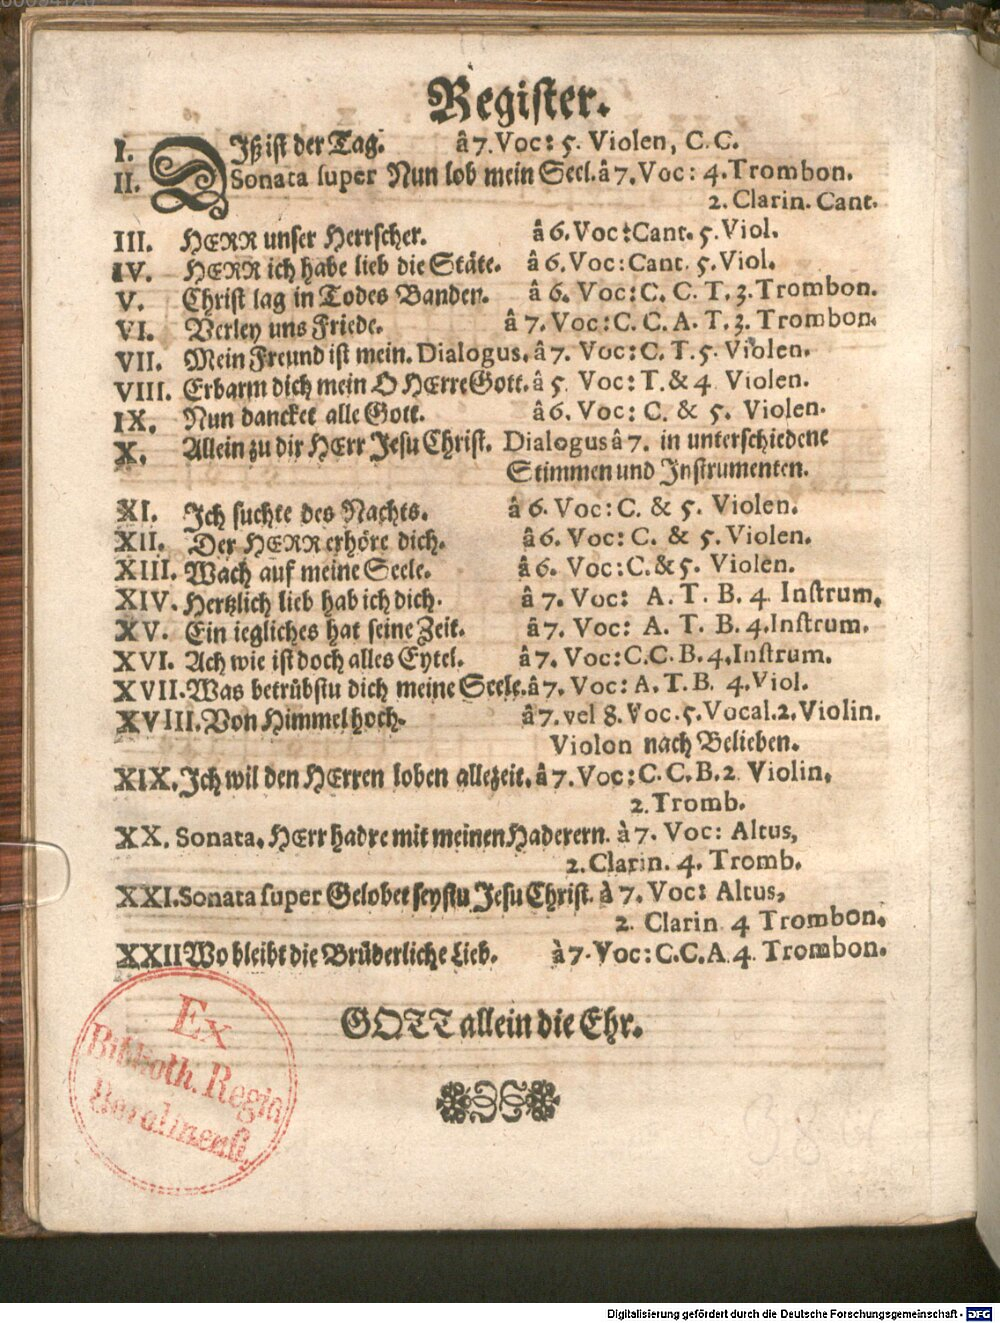 Register.
I. DIß ist der Tag. â 7. Voc: 5. Violen, C. C.
II. Sonata super Nun lob mein Seel. â 7. Voc: 4. Trombon.
2. Clarin. Cant.
III. HERR unser Herrscher. â 6. Voc: Cant. 5. Viol.
IV. HERR ich habe lieb die Stäte. â 6. Voc: Cant. 5. Viol.
V. Christ lag in Todes Banden. â 6. Voc: C. C. T. 3. Trombon.
VI. Verley uns Friede. â 7. Voc: C. C. A. T. 3. Trombon.
VII. Mein Freund ist mein. Dialogus. â 7. Voc: C. T. 5. Violen.
VIII. Erbarm dich mein O HErre Gott. â 5 Voc: T. & 4 Violen.
IX. Nun dancket alle Gott. â 6. Voc: C. & 5. Violen.
X. Allein zu dir HErr Jesu Christ. Dialogus â 7. in unterschiedene
Stimmen und Instrumenten.
XI. Ich suchte des Nachts. â 6. Voc: C. & 5. Violen.
XII. Der HERR erhöre dich. â 6. Voc: C. & 5. Violen.
XIII. Wach auf meine Seele. â 6. Voc: C. & 5. Violen.
XIV. Hertzlich lieb hab ich dich. â 7. Voc: A. T. B. 4. Instrum.
XV. Ein iegliches hat seine Zeit. â 7. Voc: A. T. B. 4. Instrum.
XVI. Ach wie ist doch alles Eytel. â 7. Voc: C. C. B. 4. Instrum.
XVII. Was betrübstu dich meine Seele. â 7. Voc: A. T. B. 4. Viol.
XVIII. Von Himmel hoch. â 7. vel 8. Voc. 5. Vocal. 2. Violin.
Violon nach Belieben.
XIX. Ich wil den HErren loben allezeit. â 7. Voc: C. C. B. 2 Violin.
2. Tromb.
XX. Sonata. HErr hadre mit meinen Haderern. à 7. Voc: Altus,
2. Clarin. 4. Tromb.
XXI. Sonata super Gelobet seystu Jesu Christ. à 7. Voc: Altus,
2. Clarin 4 Trombon.
XXII Wo bleibt die Brüderliche Lieb. à 7. Voc: C. C. A. 4. Trombon.
GOTT allein die Ehr.
Ex
Biblioth. Regia
Berolinensi.
Digitalisierung gefördert durch die Deutsche Forschungsgemeinschaft - DFG